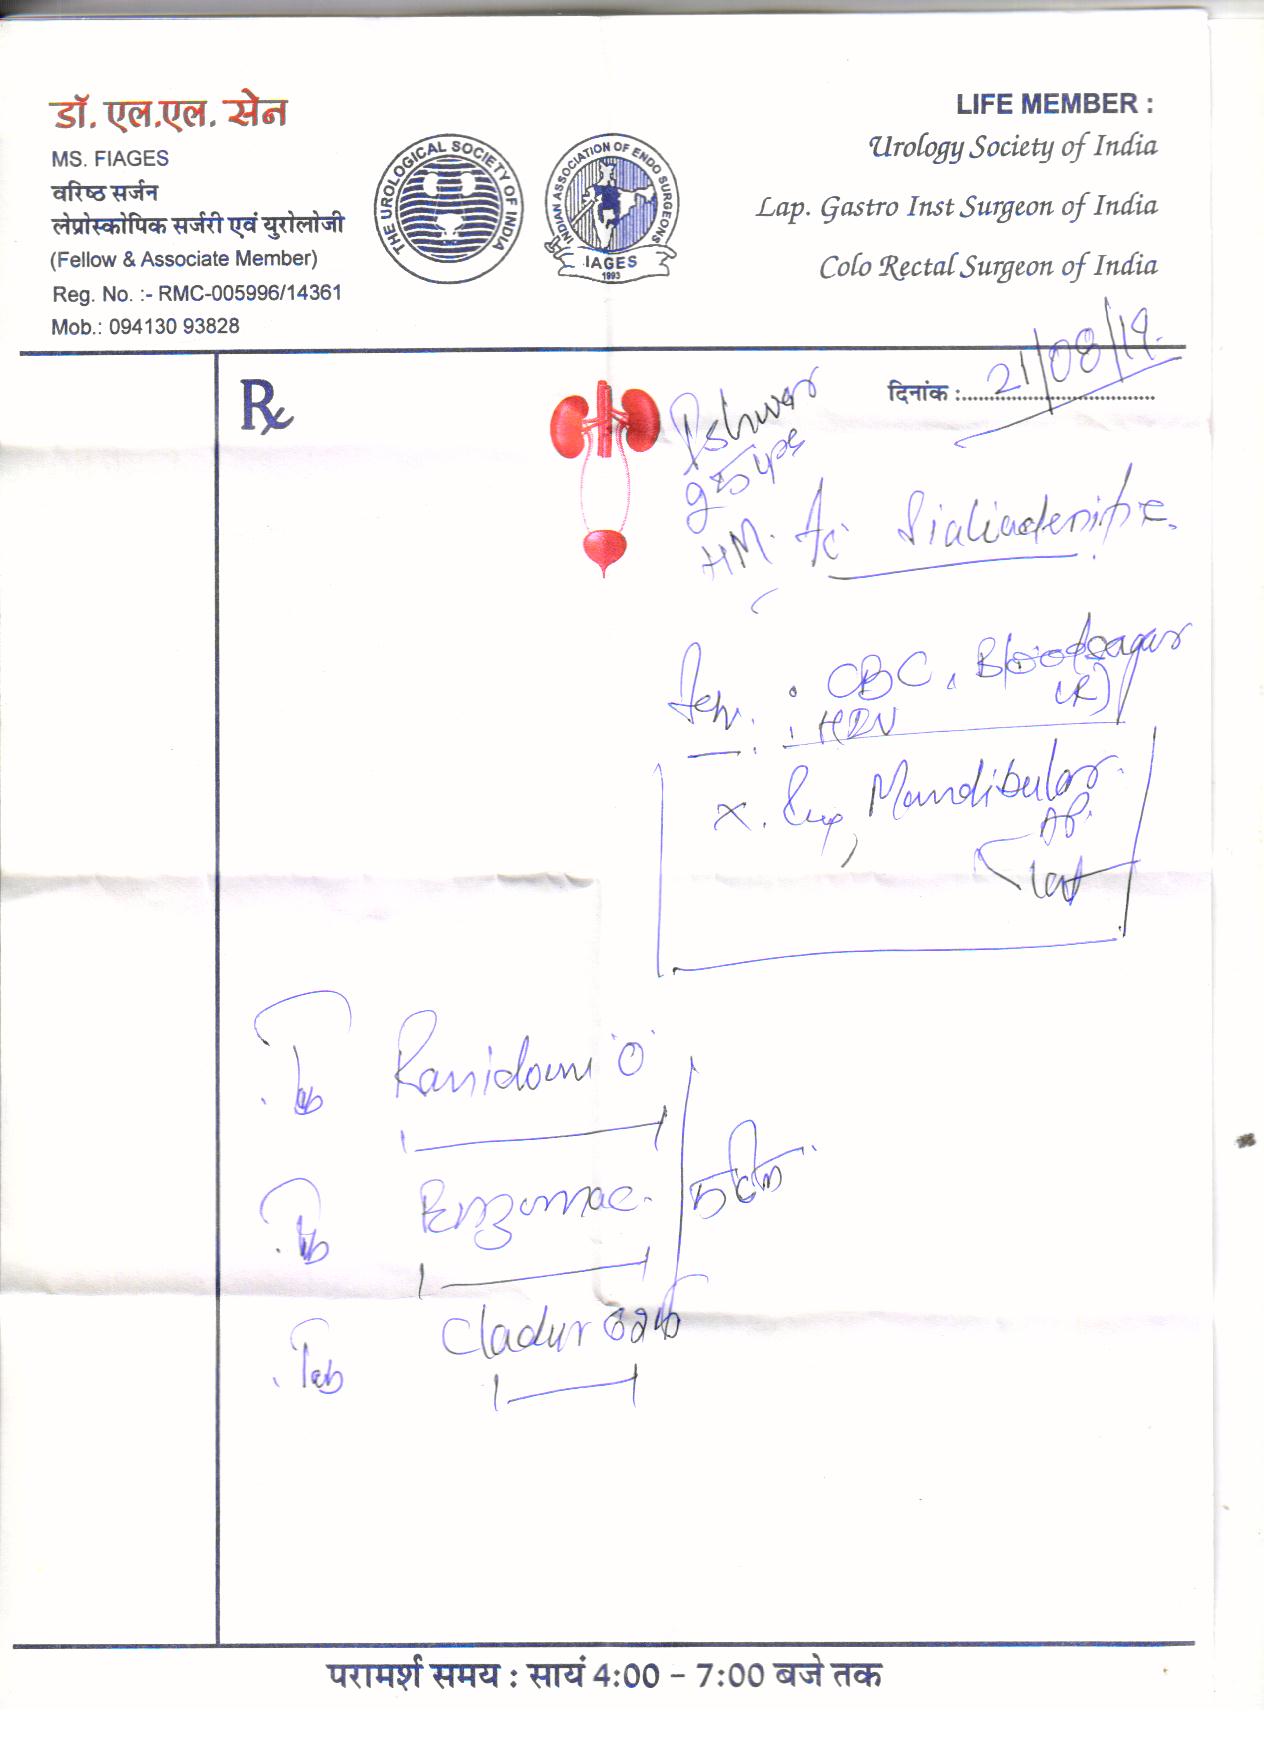 डॉ. एल.एल. सेन
MS. FIAGES
वरिष्ठ सर्जन
लेप्रोस्कोपिक सर्जरी एवं युरोलोजी
(Fellow & Associate Member)
Reg. No. :- RMC-005996/14361
Mob.: 094130 93828
THE UROLOGICAL SOCIETY OF INDIA
INDIAN ASSOCIATION OF ENDO SURGEONS
IAGES
1993
LIFE MEMBER :
Urology Society of India
Lap. Gastro Inst Surgeon of India
Colo Rectal Surgeon of India
Rx
दिनांक : 21/08/19
Ac Sialiadenitis
: CBC, Bloodsugar
(R)
x. Mandibular
AP
Lat
Tab Ranidom 'O'
Tab Enzomac
Tab
परामर्श समय : सायं 4:00 – 7:00 बजे तक